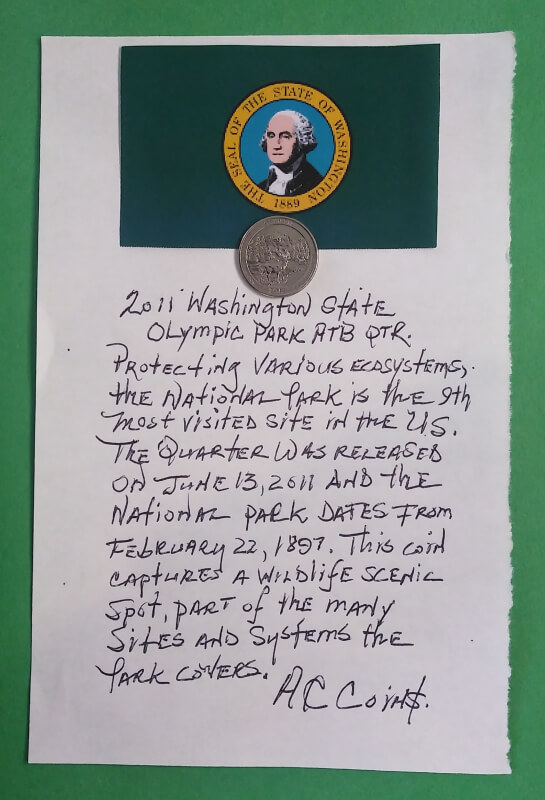 THE SEAL OF THE STATE OF WASHINGTON
1889
2011 WASHINGTON STATE
OLYMPIC PARK ATB QTR.
PROTECTING VARIOUS ECOSYSTEMS,
the NATIONAL PARK is the 9th
most VISITED SITE in the U.S.
THE QUARTER WAS RELEASED
ON JUNE 13, 2011 AND the
NATIONAL PARK DATES FROM
FEBRUARY 22, 1897. This coin
CAPTURES A WILDLIFE SCENIC
Spot, PART of the many
Sites AND Systems the
PARK COVERS.
AC Coin$.